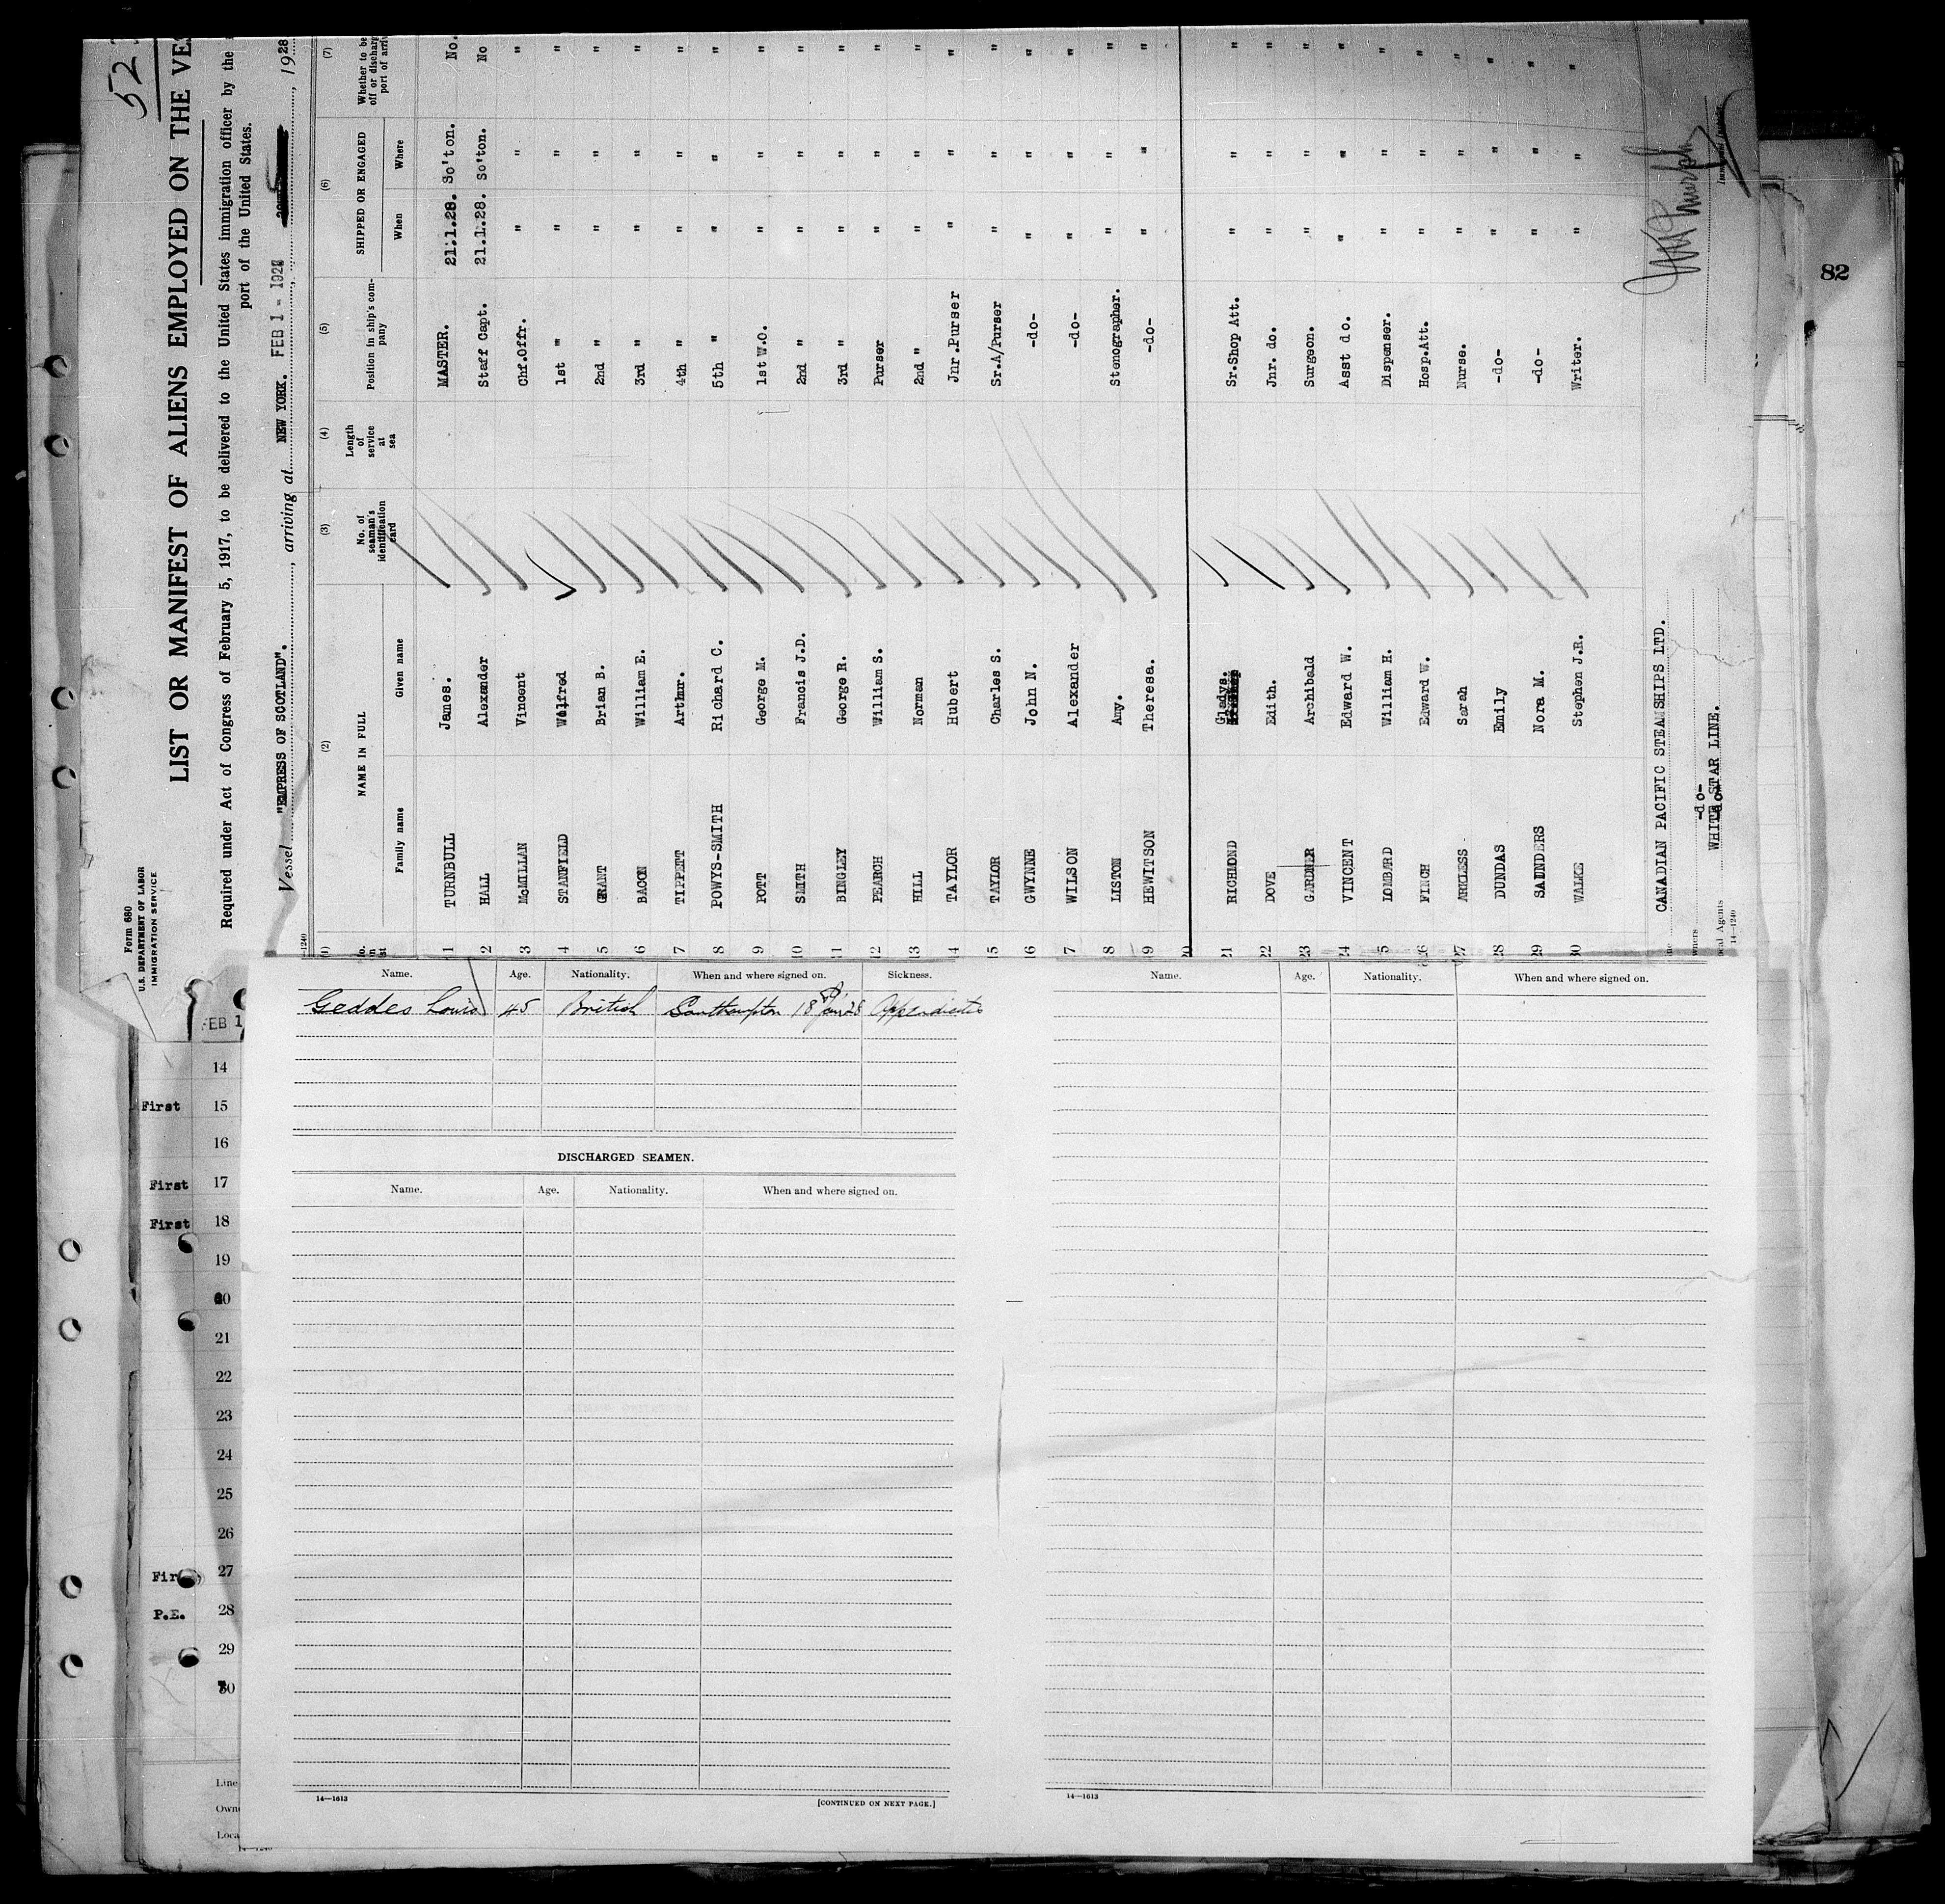 523
Form 680
U.S. DEPARTMENT OF LABOR
IMMIGRATION SERVICE
LIST OR MANIFEST OF ALIENS EMPLOYED ON THE VES
Required under Act of Congress of February 5, 1917, to be delivered to the United States immigration officer by the
port of the United States.
Vessel "EMPRESS OF SCOTLAND"., arriving at NEW YORK. FEB 1 - 1928, 1928
(1) (2) (3) (4) (5) (6) (7)
NAME IN FULL
Family name Given name
No. of seaman's identification card
Length of service at sea
Position in ship's company
SHIPPED OR ENGAGED
When Where
Whether to be
off or discharg
port of arriv
1 TURNBULL James. MASTER. 21.1.28. So'ton. No.
2 HALL Alexander Staff Capt. 21.1.28. So'ton. No
3 McMILLAN Vincent Chf.Offr. " " "
4 STANFIELD Wilfred 1st " " " "
5 GRANT Brian B. 2nd " " " "
6 BACON William E. 3rd " " " "
7 TIPPETT Arthur. 4th " " " "
8 POWYS-SMITH Richard C. 5th " " " "
9 POTT George M. 1st W.O. " " "
10 SMITH Francis J.D. 2nd " " " "
11 BINGLEY George R. 3rd " " " "
12 PEARCH William S. Purser " " "
13 HILL Norman 2nd " " " "
14 TAYLOR Hubert Jnr.Purser " " "
15 TAYLOR Charles S. Sr.A/Purser " " "
16 GWYNNE John N. -do- " " "
7 WILSON Alexander -do- " " "
8 LISTON Amy. Stenographer. " " "
19 HEWITSON Theresa. -do- " " "
20
21 RICHMOND Gladys. Sr.Shop Att. " " "
22 DOVE Edith. Jnr. do. " " "
23 GARDNER Archibald Surgeon. " " "
24 VINCENT Edward W. Asst do. " " "
5 LOMBARD William H. Dispenser. " " "
26 FINCH Edward W. Hosp.Att. " " "
27 ARKLESS Sarah Nurse. " " "
28 DUNDAS Emily -do- " " "
29 SAUNDERS Nora M. -do- " " "
30 WALKE Stephen J.R. Writer. " " "
CANADIAN PACIFIC STEAMSHIPS LTD.
wners -do-
ocal Agents WHITE STAR LINE.
14—1240
82
Name. Age. Nationality. When and where signed on. Sickness.
Geddes Louis 45 British Southampton 18 Jan 28 Appendicitis
DISCHARGED SEAMEN.
Name. Age. Nationality. When and where signed on.
14—1613
[CONTINUED ON NEXT PAGE.]
Name. Age. Nationality. When and where signed on.
14—1613
FEB 1
14
First 15
16
First 17
First 18
19
20
21
22
23
24
25
26
27
P.E. 28
29
30
Line
Own
Loca